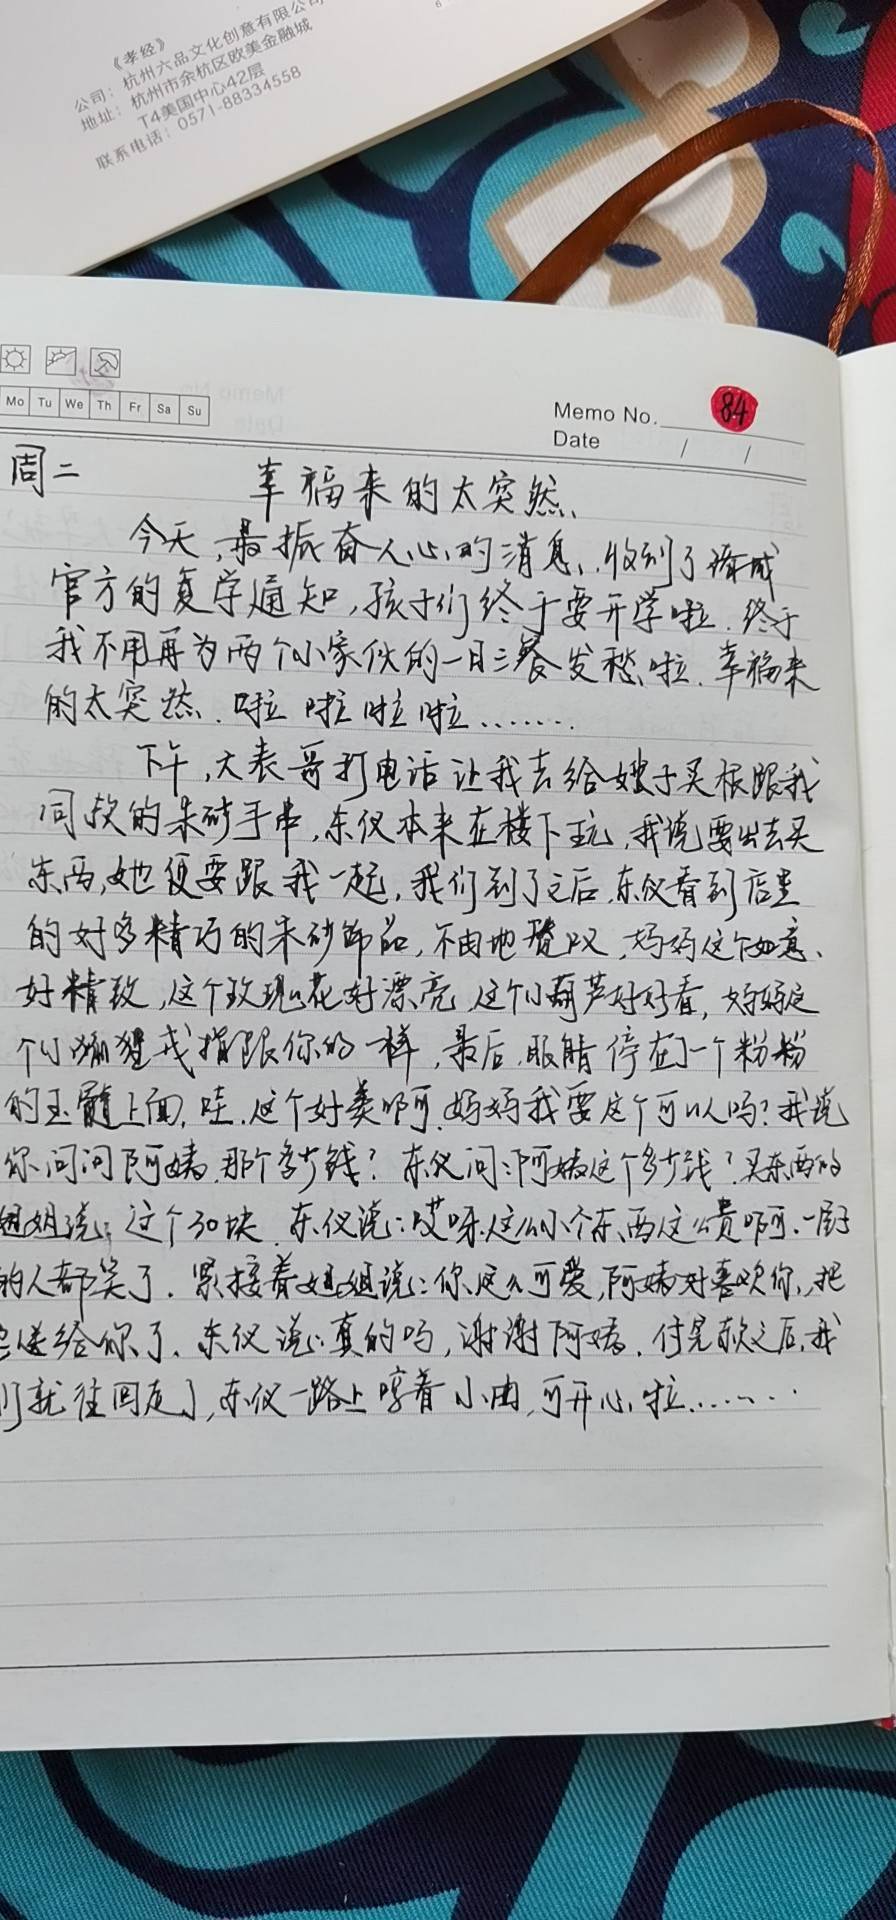 《孝经》
公司：杭州六品文化创意有限公司
地址：杭州市余杭区欧美金融城
T4美国中心42层
联系电话：0571-88334558
Mo Tu We Th Fr Sa Su
Memo No. 84
Date / /
周二 幸福来的太突然
今天,最振奋人心的消息,收到了
官方的复学通知,孩子们终于要开学啦.终于
我不用再为两个小家伙的一日三餐发愁啦.幸福来
的太突然.啦啦啦啦.......
下午,大表哥打电话让我去给嫂子买根跟我
同款的朱砂手串,东仪本来在楼下玩,我说要出去买
东西,她便要跟我一起,我们到了之后,东仪看到店里
的好多精巧的朱砂饰品,不由地赞叹,妈妈这个如意、
好精致,这个玫瑰花好漂亮,这个小葫芦好好看,妈妈这
个小狐狸戒指跟你的一样,最后,眼睛停在了一个粉粉
的玉髓上面,哇,这个好美啊,妈妈我要这个可以吗?我说
你问问阿姨,那个多少钱?东仪问:阿姨这个多少钱?买东西的
姐姐说:这个30块,东仪说:哎呀,这么小个东西这么贵啊.一厨
的人都笑了.紧接着姐姐说:你这么可爱,阿姨好喜欢你,把
它送给你了.东仪说:真的吗,谢谢阿姨.付完款之后,我
们就往回走了,东仪一路上哼着小曲,可开心啦.......